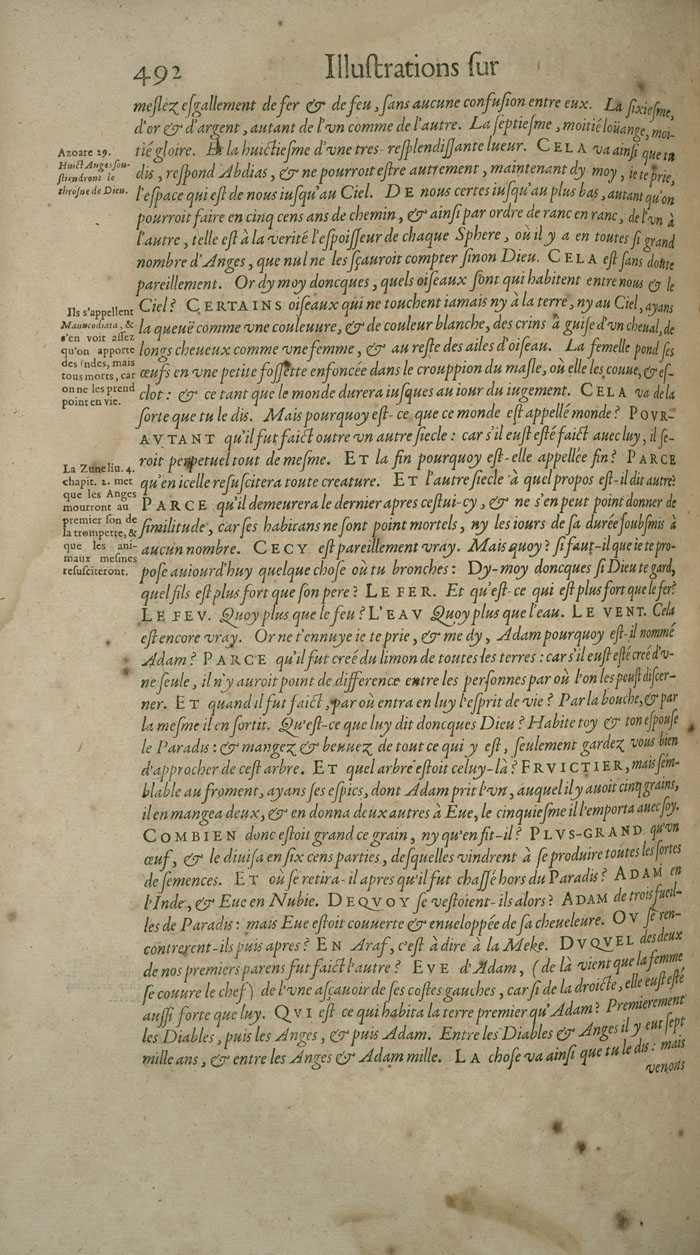 492 Illuſtrations ſur
meſlez eſgallement de fer & de feu, ſans aucune confuſion entre eux. La ſixieſme,
d'or & d'argent, autant de l'vn comme de l'autre. La ſeptieſme, moitié loüange, moi-
tié gloire. Et la huictieſme d'vne tres-reſplendiſſante lueur. CELA va ainſi que tu
dis, reſpond Abdias, & ne pourroit eſtre autrement, maintenant dy moy, ie te prie,
l'eſpace qui eſt de nous iuſqu'au Ciel. DE nous certes iuſqu'au plus bas, autant qu'on
pourroit faire en cinq cens ans de chemin, & ainſi par ordre de ranc en ranc, de l'vn à
l'autre, telle eſt à la verité l'eſpoiſſeur de chaque Sphere, où il y a en toutes ſi grand
nombre d'Anges, que nul ne les ſçauroit compter ſinon Dieu. CELA eſt ſans doute
pareillement. Or dy moy doncques, quels oiſeaux ſont qui habitent entre nous & le
Ciel? CERTAINS oiſeaux qui ne touchent iamais ny à la terre, ny au Ciel, ayans
la queuë comme vne couleuure, & de couleur blanche, des crins à guiſe d'vn cheual, de
longs cheueux comme vne femme, & au reſte des ailes d'oiſeau. La femelle pond ſes
œufs en vne petite foſſette enfoncée dans le crouppion du maſle, où elle les couue, & eſ-
clot: & ce tant que le monde durera iuſques au iour du iugement. CELA va de la
ſorte que tu le dis. Mais pourquoy eſt-ce que ce monde eſt appellé monde? POVR-
AVTANT qu'il fut faict outre vn autre ſiecle: car s'il euſt eſté faict auec luy, il ſe-
roit perpetuel tout de meſme. ET la fin pourquoy eſt-elle appellée fin? PARCE
qu'en icelle reſuſcitera toute creature. ET l'autre ſiecle à quel propos eſt-il dit autre?
PARCE qu'il demeurera le dernier apres ceſtui-cy, & ne s'en peut point donner de
ſimilitude, car ſes habitans ne ſont point mortels, ny les iours de ſa durée ſoubſmis à
aucun nombre. CECY eſt pareillement vray. Mais quoy? ſi faut-il que ie te pro-
poſe auiourd'huy quelque choſe où tu bronches: Dy-moy doncques ſi Dieu te gard,
quel fils eſt plus fort que ſon pere? LE FER. Et qu'eſt-ce qui eſt plus fort que le fer?
LE FEV. Quoy plus que le feu? L'EAV Quoy plus que l'eau. LE VENT. Cela
eſt encore vray. Or ne t'ennuye ie te prie, & me dy, Adam pourquoy eſt-il nommé
Adam? PARCE qu'il fut creé du limon de toutes les terres: car s'il euſt eſté creé d'v-
ne ſeule, il n'y auroit point de difference entre les perſonnes par où l'on les peuſt diſcer-
ner. ET quand il fut faict, par où entra en luy l'eſprit de vie? Par la bouche, & par
la meſme il en ſortit. Qu'eſt-ce que luy dit doncques Dieu? Habite toy & ton eſpouſe
le Paradis: & mangez & beuuez de tout ce qui y eſt, ſeulement gardez vous bien
d'approcher de ceſt arbre. ET quel arbre eſtoit celuy-là? FRVICTIER, mais ſem-
blable au froment, ayans ſes eſpics, dont Adam prit l'vn, auquel il y auoit cinq grains,
il en mangea deux, & en donna deux autres à Eue, le cinquieſme il l'emporta auec ſoy.
COMBIEN donc eſtoit grand ce grain, ny qu'en fit-il? PLVS-GRAND qu'vn
œuf, & le diuiſa en ſix cens parties, deſquelles vindrent à ſe produire toutes les ſortes
de ſemences. ET où ſe retira-il apres qu'il fut chaſſé hors du Paradis? ADAM en
l'Inde, & Eue en Nubie. DEQVOY ſe veſtoient-ils alors? ADAM de trois fueil-
les de Paradis: mais Eue eſtoit couuerte & enueloppée de ſa cheueleure. OV ſe ren-
contrerent-ils puis apres? EN Araf, c'eſt à dire à la Meke. DVQVEL des deux
de nos premiers parens fut faict l'autre? EVE d'Adam, (de là vient que la femme
ſe couure le chef) de l'vne aſçauoir de ſes coſtes gauches, car ſi de la droicte, elle euſt eſté
auſſi forte que luy. QVI eſt ce qui habita la terre premier qu'Adam? Premierement
les Diables, puis les Anges, & puis Adam. Entre les Diables & Anges il y eut ſept
mille ans, & entre les Anges & Adam mille. LA choſe va ainſi que tu le dis: mais
venons
Azoare 29.
Huict Anges ſou-
ſtiendront le
throſne de Dieu.
Ils s'appellent
Manucodiata, &
s'en voit aſſez
qu'on apporte
des Indes, mais
tous morts, car
on ne les prend
point en vie.
La Zune liu. 4.
chapit. 2. met
que les Anges
mourront au
premier ſon de
la trompette, &
que les ani-
maux meſmes
reſuſciteront.